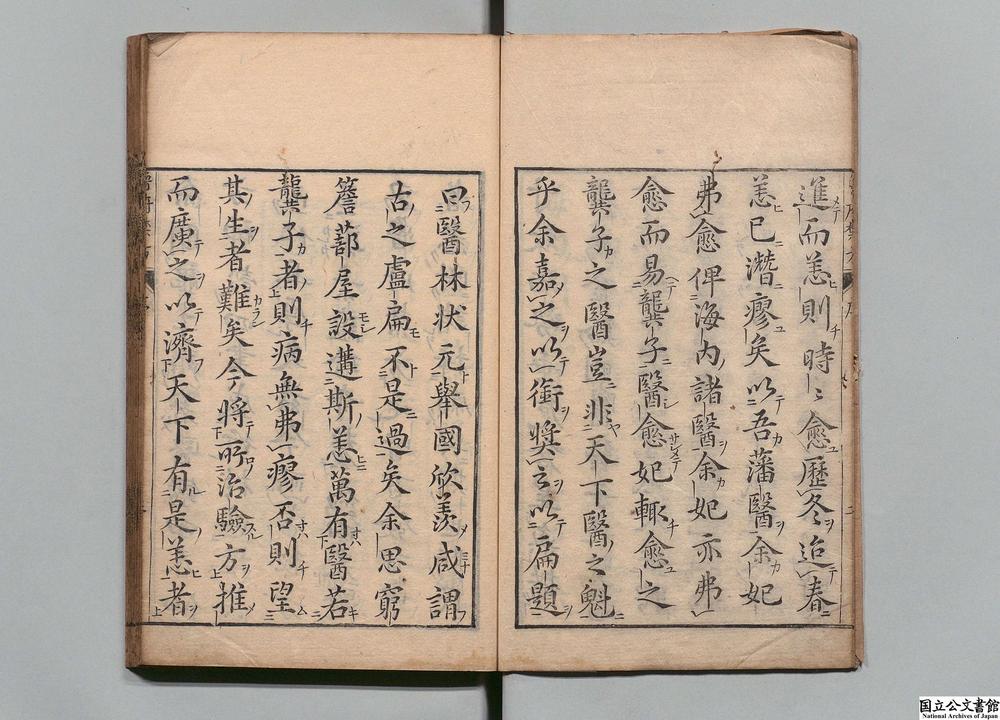 進而恙則時〻愈歷冬迨春
恙已潛瘳矣以吾藩醫余妃
弗愈俾海内諸醫余妃亦弗
愈而易龔子醫愈妃輒愈之
龔子之醫豈非天下醫之魁
乎余嘉之以銜奬云以扁題
曰醫林状元舉國欣羨咸謂
古之盧扁不是過矣余思窮
簷蔀屋設遘斯恙萬有醫若
龔子者則病無弗瘳否則望
其生者難矣今將所治驗方推
而廣之以濟天下有是恙者
国立公文書館
National Archives of Japan